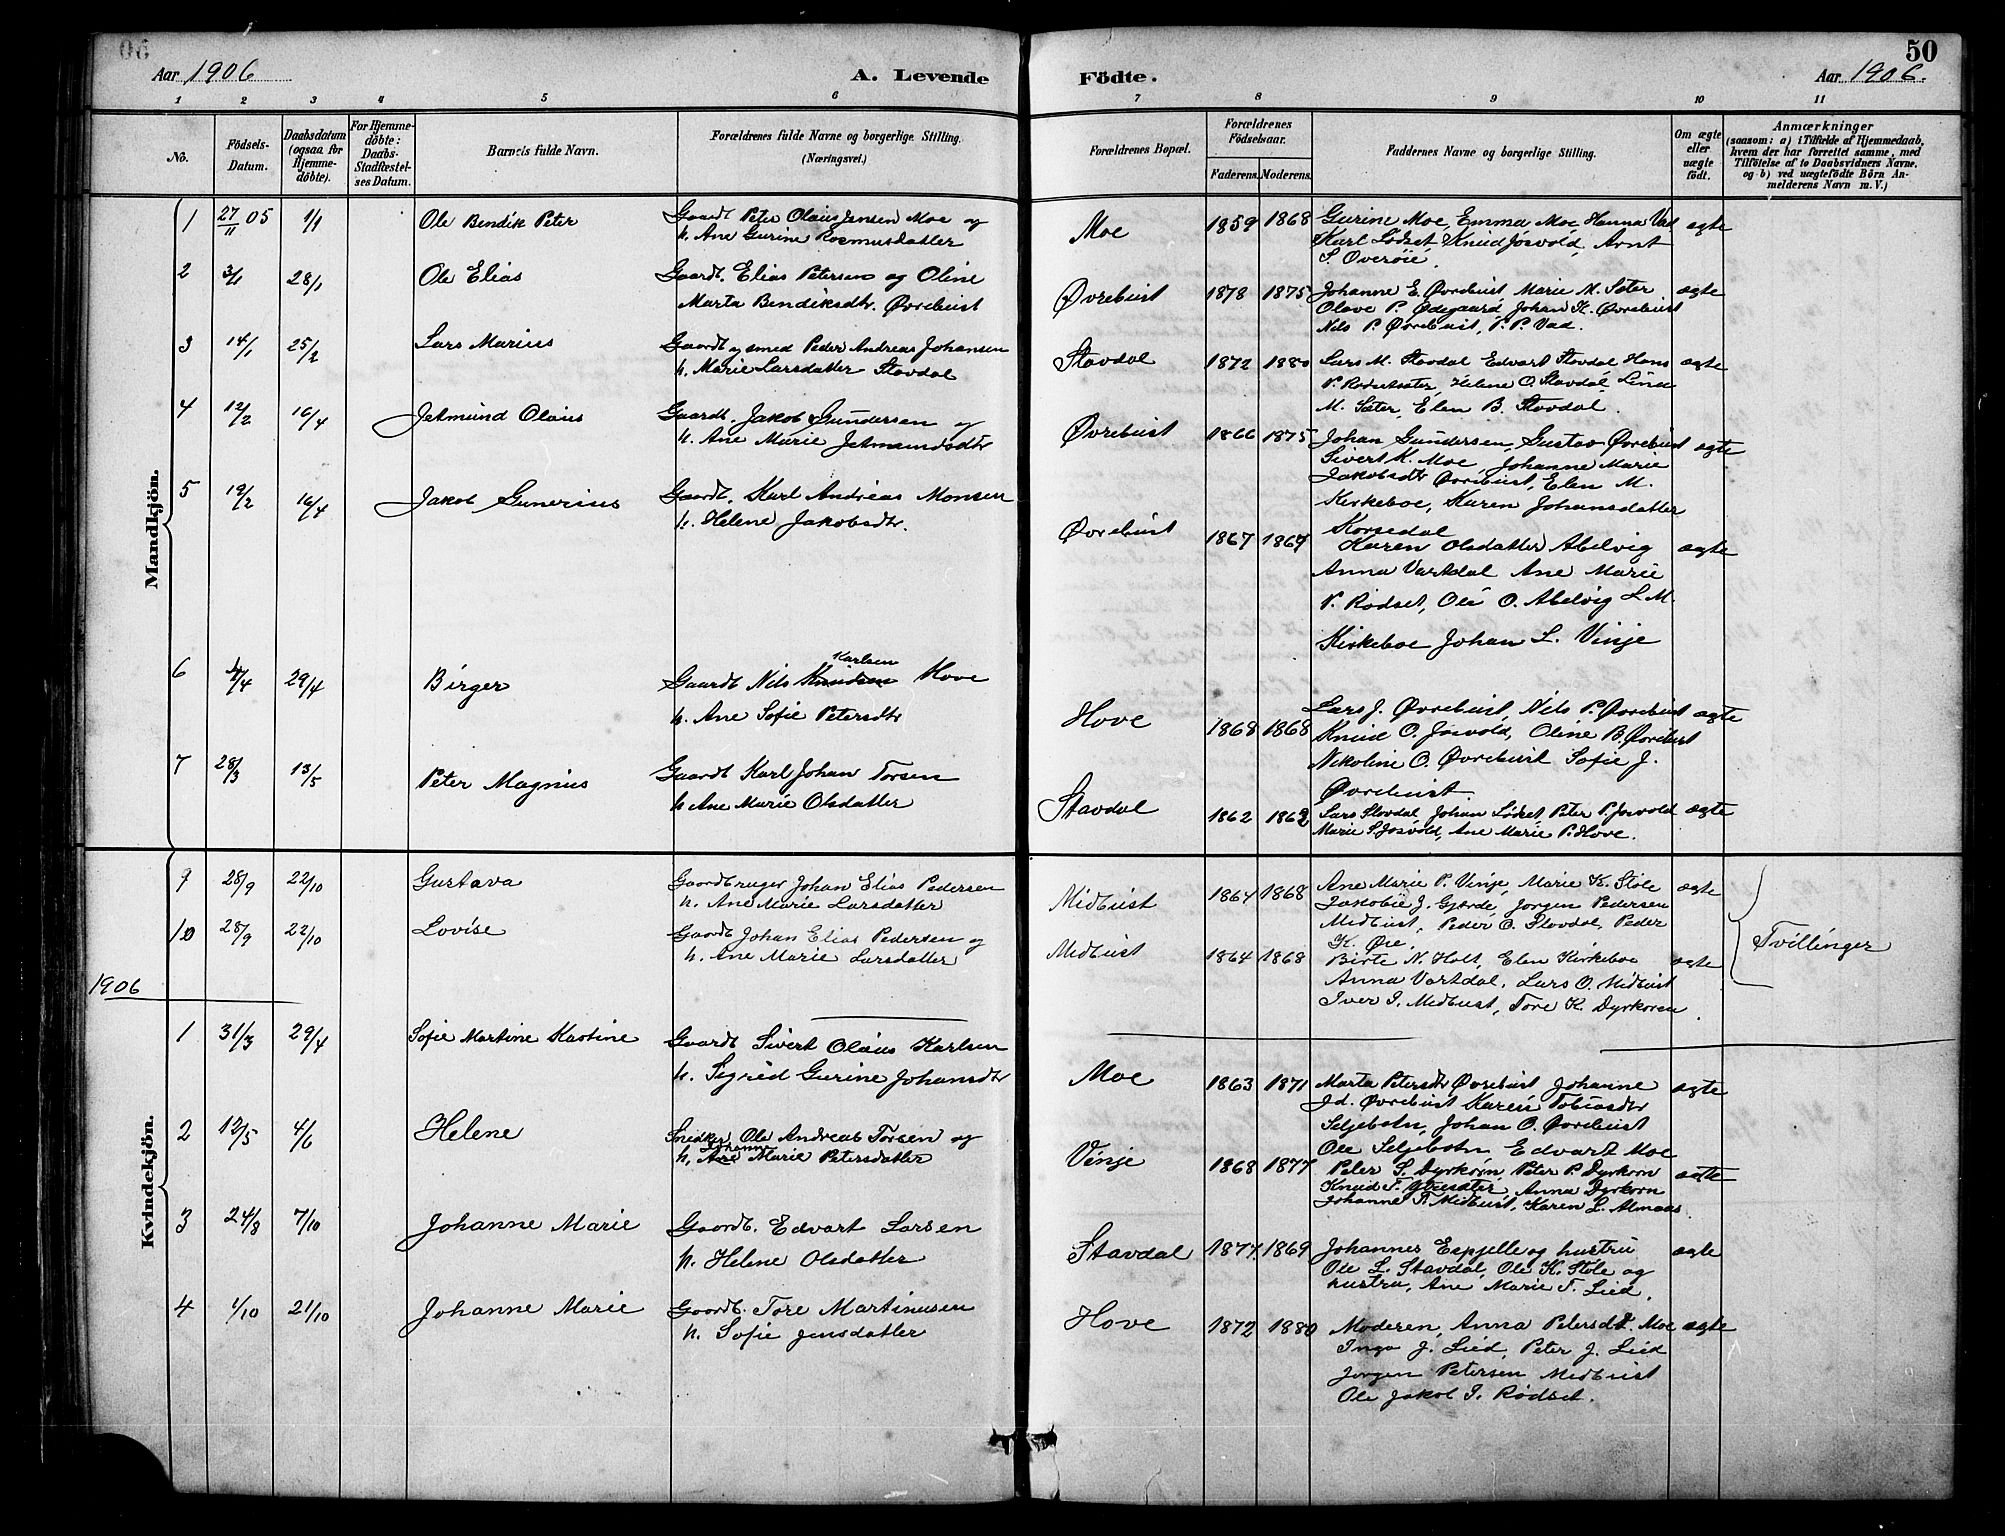 50
Aar 1906
A. Levende
Födte.
Aar 1906.
1 2 3 4 5 6 7 8 9 10 11
No.
Födsels-
Datum.
Daabsdatum
(ogsaa for
Hjemme-
döbte).
For Hjemme-
döbte:
Daabs-
Stadfæstel-
ses Datum.
Barnets fulde Navn.
Forældrenes fulde Navne og borgerlige Stilling.
(Næringsvei.)
Forældrenes Bopæl.
Forældrenes
Födselsaar.
Faderens. Moderens.
Faddernes Navne og borgerlige Stilling.
Om ægte
eller
uægte
födt.
Anmærkninger
(saasom: a) i Tilfælde af Hjemmedaab,
hvem der har forrettet samme, med
Tilföielse af to Daabsvidners Navne.
og b) ved uægtefödte Börn An-
melderens Navn m.V.)
Mandkjön.
1 27/11 05 1/1 Ole Bendik Peter
Gaardt Peter Olaus Jensen Moe og
h. Ane Gurine Rasmusdatter
Moe 1859 1868
Gurine Moe, Emma Moe Hanna Vad
Karl Lødset Knud Josvold, Arnt
S. Overøie
ægte
2 3/1 28/1 Ole Elias
Gaardt. Elias Petersen og Oline
Marta Bendiksdtr. Øvrebust
Øvrebust 1878 1875
Johanne E. Øvrebust, Marie M. Sæter
Olave P. Ødegaard, Johan K. Øvrebust
Nils P. Øvrebust, P. P. Vad.
ægte
3 14/1 25/2 Lars Marius
Gaardt og smed Peder Andreas Johansen
h. Marie Larsdatter Stavdal
Stavdal 1872 1880
Lars M. Stavdal Edvart Stavdal Hans
P. Rødsetsæter, Helene O. Stavdal Lina
M. Sæter, Elen B. Stavdal.
ægte
4 12/2 16/4 Jetmund Olaus
Gaardt. Jakob Gundersen og
h. Ane Marie Jetmundsdtr
Øvrebust 1866 1875
Johan Gundersen, Gustav Øvrebust
Sivert K. Moe, Johanne Marie
Jakobsdtr Øvrebust, Elen M.
Kirkeboe, Karen Johansdatter
Korsedal
ægte
5 19/2 16/4 Jakob Gunerius
Gaardt. Karl Andreas Monsen
h. Helene Jakobsdtr.
Øvrebust 1867 1867
Karen Olsdatter Abelvig
Anna Vartdal Ane Marie
P. Rødset, Ole O. Abelvig L. M.
Kirkeboe Johan L. Vinje
ægte
6 4/4 29/4 Birger
Karlsen
Gaardt Nils Knudsen Hove
h. Ane Sofie Petersdtr
Hove 1868 1868
Lars J. Øvrebust, Nils P. Øvrebust
Knud O. Josvold, Oline B. Øvrebust
Nikoline O. Øvrebust Sofie J.
Øvrebust
ægte
7 28/3 13/5 Peter Magnus
Gaardt Karl Johan Torsen
h Ane Marie Olsdatter
Stavdal 1862 1862
Lars Stavdal, Johan Lødset, Peter P. Josvold
Marie S. Josvold, Ane Marie P. Hove.
ægte
Kvindekjön.
9 28/9 22/10 Gustava
Gaardbruger Johan Elias Pedersen
h. Ane Marie Larsdatter
Midbust 1864 1868
Ane Marie P. Vinje, Marie K. Støle
Jakobie J. Gjærde, Jørgen Pedersen
Midbust, Peder O. Stavdal, Peder
K. Øie,
ægte
10 28/9 22/10 Lovise
Gaardt Johan Elias Pedersen og
h. Ane Marie Larsdatter
Midbust 1864 1868
Birte N. Holt, Elen Kirkeboe
Anna Vartdal, Lars O. Midbust
Iver I. Midbust, Tore K. Dyrkoren.
ægte
Tvillinger
1906
1 31/3 29/4 Sofie Martine Kastine
Gaardt Sivert Olaus Karlsen
h. Sigrid Gurine Johansdtr
Moe 1863 1871
Marta Petersdtr Øvrebust Johanne
Jd. Øvrebust Karen Tobiasdtr
Seljebotn, Johan O. Øvrebust
Ole Seljebotn Edvart Moe
ægte
2 12/5 4/6 Helene
Snedker Ole Andreas Torsen og
Johanne
h. Ane Marie Petersdatter
Vinje 1868 1877
Peter S. Dyrkorn, Peter P. Dyrkorn
Knud T., Anna Dyrkorn
Johanne T. Midbust, Karen L. Almaas.
ægte
3 24/8 7/10 Johanne Marie
Gaardt. Edvart Larsen
h. Helene Olsdatter
Stavdal 1877. 1869
Johannes Espjelle og hustru
Ole L. Stavdal, Ole K. Støle og
hustru, Ane Marie T. Lied.
ægte
4 1/10 21/10 Johanne Marie
Gaardt. Tore Martinusen
h. Sofie Jensdatter
Hove 1872 1880
Moderen, Anna Petersdt. Moe
Inga J. Lied, Peter J. Lied
Jørgen Petersen Midbust
Ole Jakob I. Rødset.
ægte